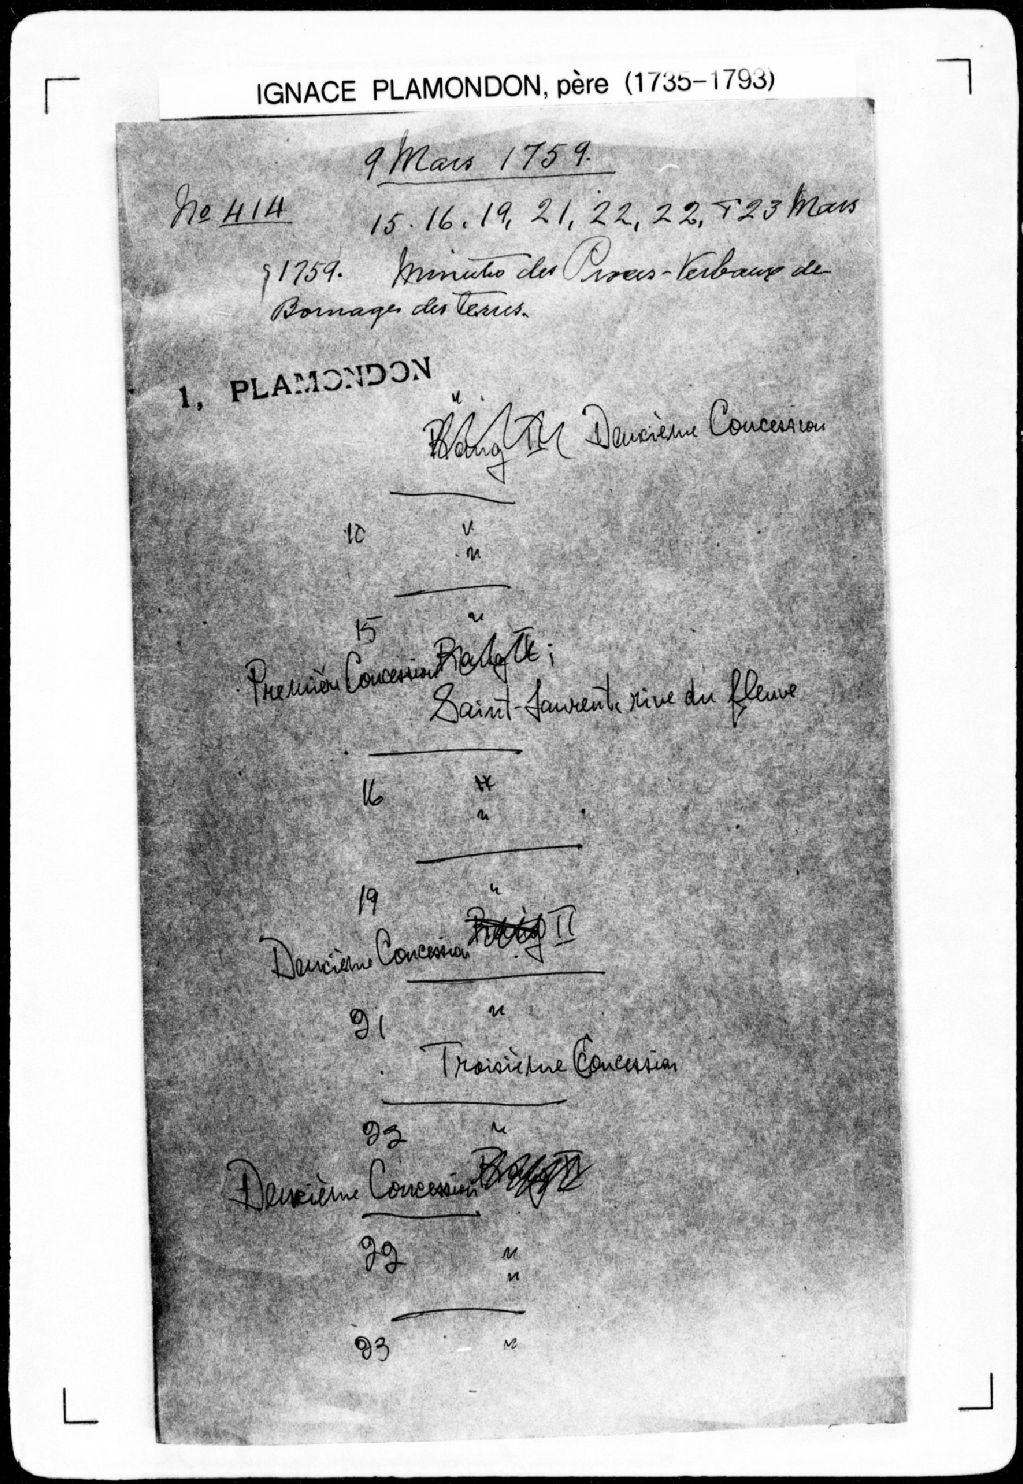 IGNACE PLAMONDON, père (1735-1793)
9 Mars 1759.
No 414 15. 16. 19, 21, 22, 22, + 23 Mars
1759. Minutes des Procès-Verbaux de
Bornages des Terres.
1, PLAMONDON
"
Rang II Deuxième Concession
10 "
"
15 "
Première Concession Rang II;
Saint-Laurent, rive du fleuve
16 "
"
19 "
Deuxième Concession Rang II
21 "
Troisième Concession
22 "
Deuxième Concession Rang II
22 "
"
23 "